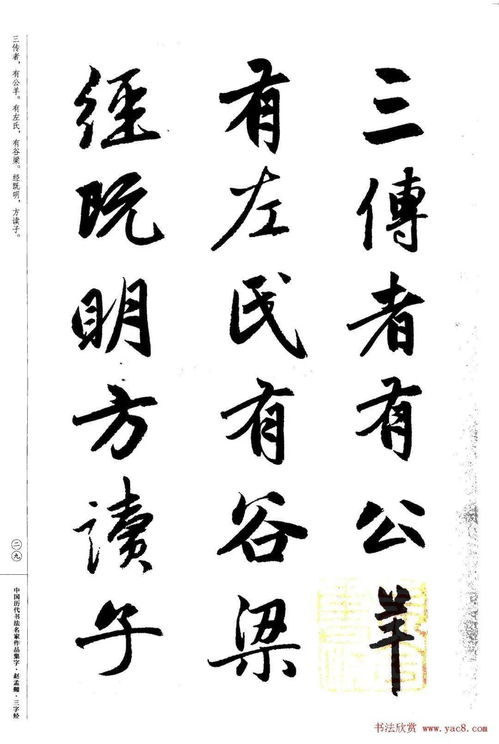 三傳者有公羊
有左氏有谷梁
經既明方讀子
三传者，有公羊。有左氏，有谷梁。经既明，方读子。
二九
中国历代书法名家作品集字·赵孟頫·三字经
书法欣赏 www.yac8.com